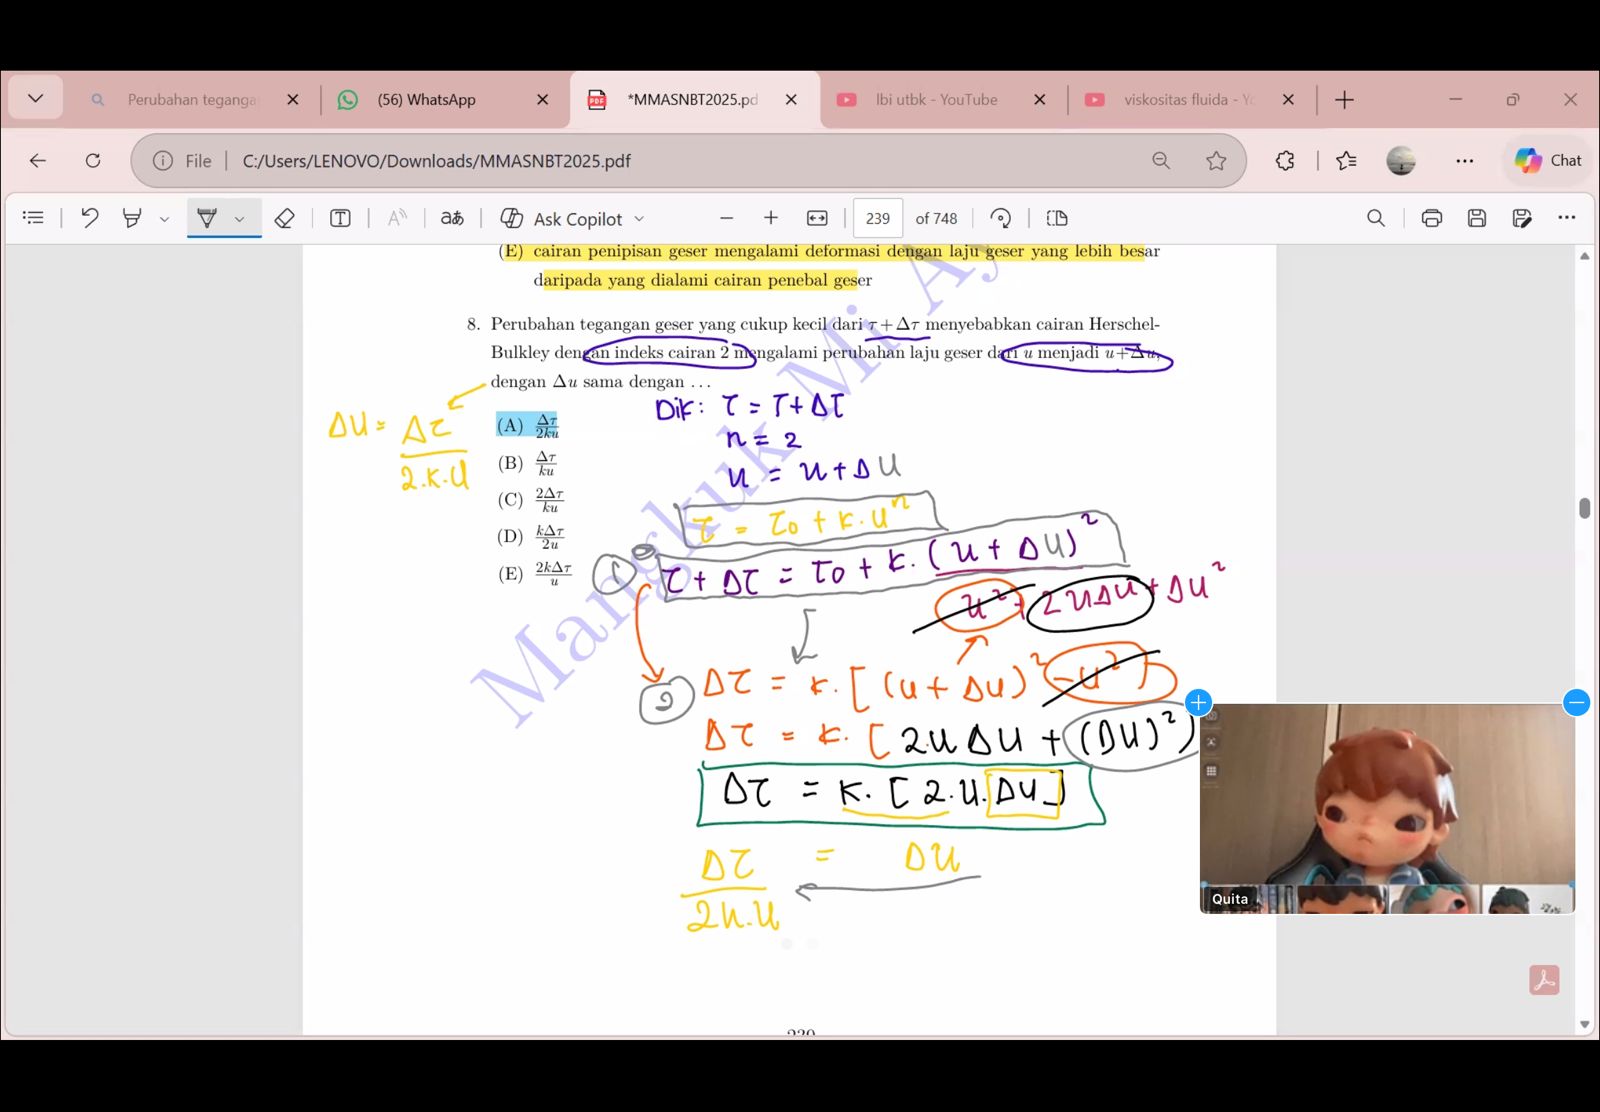 Perubahan teganga
(56) WhatsApp
*MMASNBT2025.pd
lbi utbk - YouTube
viskositas fluida - Yo
File
C:/Users/LENOVO/Downloads/MMASNBT2025.pdf
Chat
Ask Copilot
239 of 748
(E) cairan penipisan geser mengalami deformasi dengan laju geser yang lebih besar
daripada yang dialami cairan penebal geser
8. Perubahan tegangan geser yang cukup kecil dari τ+Δτ menyebabkan cairan Herschel-
Bulkley dengan indeks cairan 2 mengalami perubahan laju geser dari u menjadi u+Δu,
dengan Δu sama dengan ...
(A) Δτ/2ku
(B) Δτ/ku
(C) 2Δτ/ku
(D) kΔτ/2u
(E) 2kΔτ/u
Mangkuk Mi Ay
ΔU = Δτ/2.K.U
Dik: τ = τ+Δτ
n = 2
u = u+ΔU
τ = τ0 + K.U^n
1 τ + Δτ = τ0 + K.(U + ΔU)²
U² + 2UΔU + ΔU²
2 Δτ = K.[(U + ΔU)² - U²]
Δτ = K.[2.U ΔU + (ΔU)²)
Δτ = K.[2.U.ΔU]
Δτ/2K.U = ΔU
Quita